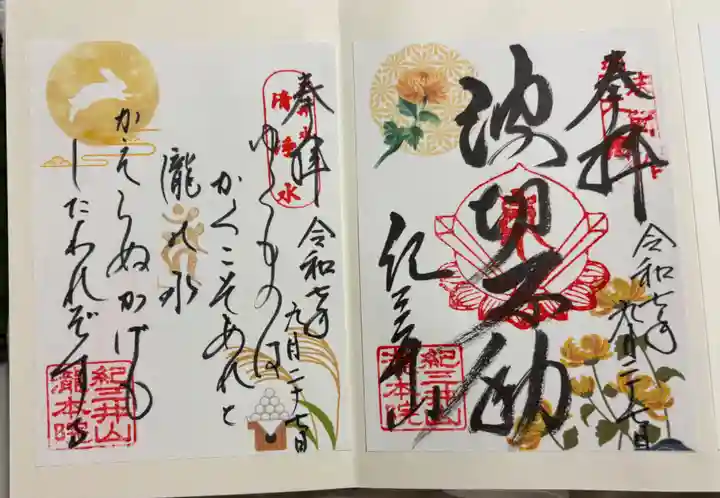 奉拝
令和七年
九月二十七日
波切不動
紀三井山
紀三井山
瀧本院
奉拝
令和七年
九月二十七日
清浄水
ゆくものは
かくこそあれと
瀧の水
かえらぬかげも
したわれぞする
紀三井山
瀧本院